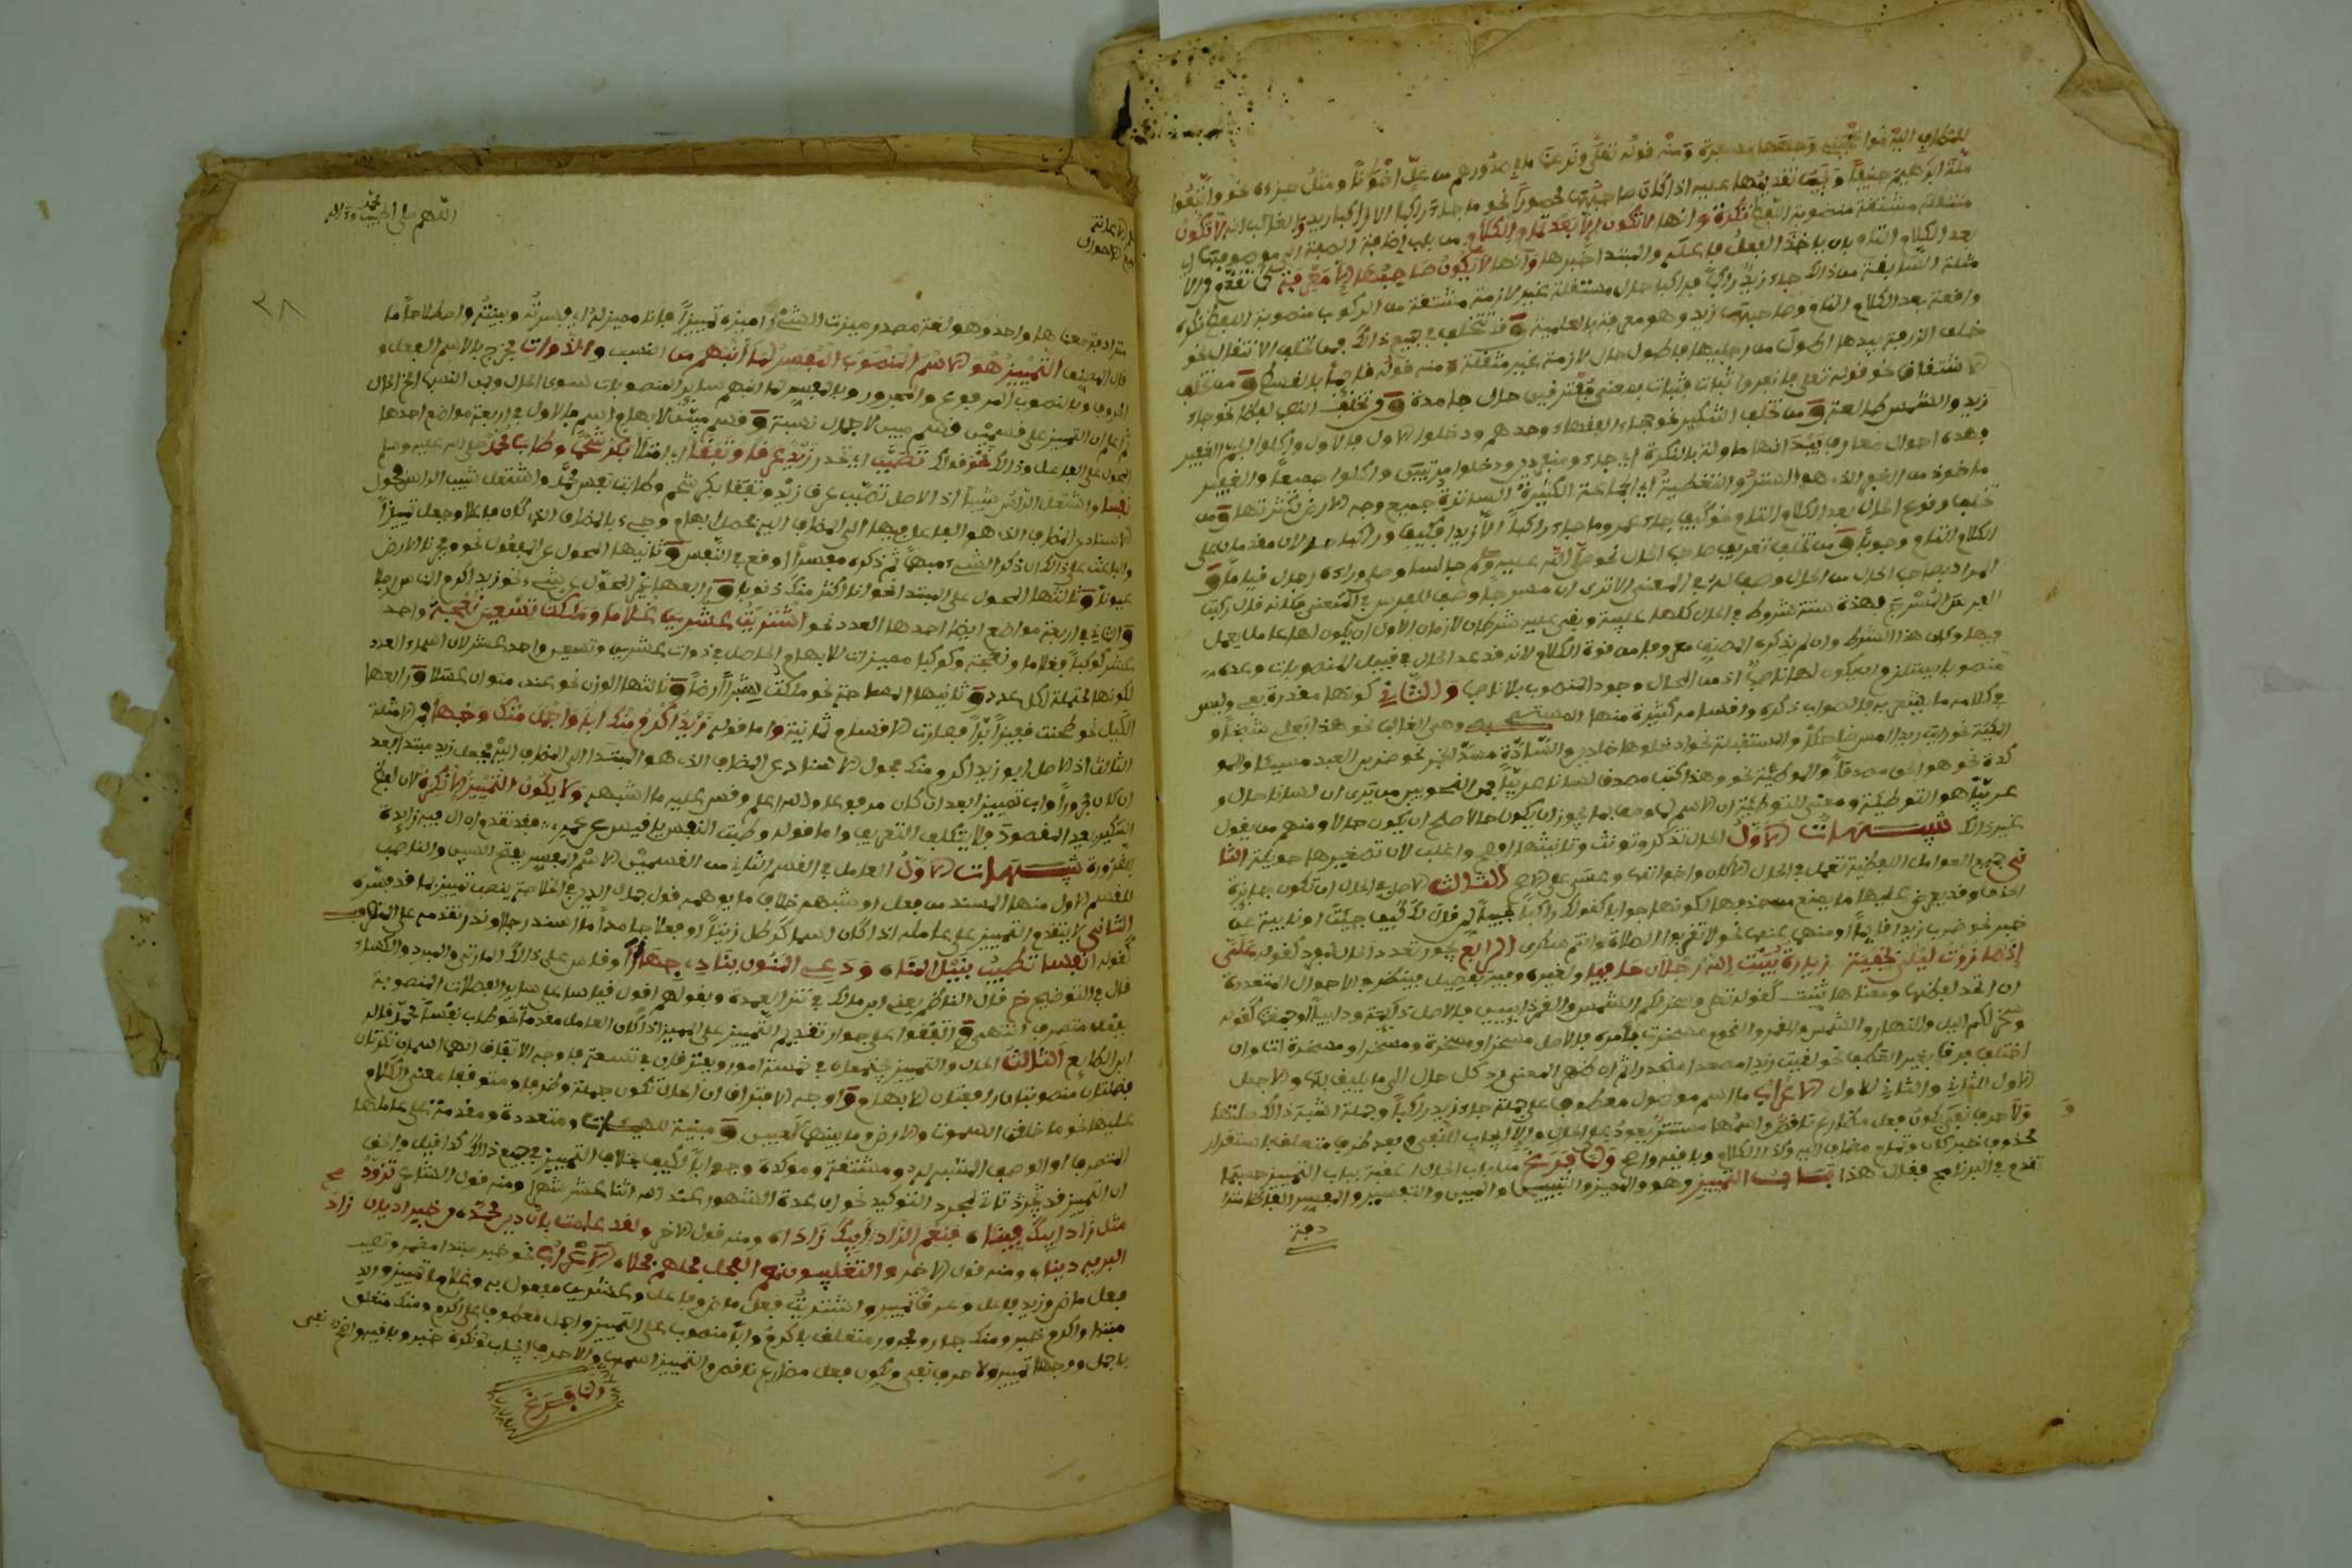 للمضاف اليه نحو ومنه قوله تعلى ونزعنا ما في صدورهم من غل اخوانا ومثل جزءه نحو واتبعوا
ملة ابرهيم حنيفا تقديمها عليه اذا كان صاحبها محصورا نحو ما جاء راكبا الا زيد والغالب انه لا تكون
منتقلة مشتقة منصوبة اللفظ نكرة وانها لا تكون الا بعد تمام الكلام من باب اضافة الصفة الى موصوفها اي
بعد الكلام التام بان ياخذ الفعل فاعله والمبتدا خبره وانها لا يكون صاحبها الا معرفة
جاء زيد راكبا فراكبا حال منتقلة غير لازمة مشتقة من الركوب منصوبة اللفظ نكرة
واقعة بعد الكلام التام وصاحبها زيد وهو معرفة بالعلمية وقد تتخلف في جميع ذلك فمن تخلف الانتقال نحو
خلق الزرافة يديها اطول من رجليها فاطول حال لازمة غير منتقلة ومنه قوله قائما بالقسط ومن تخلف
الاشتقاق نحو قوله تعلى فانفروا ثبات فثبات بمعنى متفرقين حال جامدة
زيد والشمس طالعة ومن تخلف التنكير نحو جاء القضاة وحدهم ودخلوا الاول فالاول وجاءوا الجم الغفير
فهذه احوال معارف بيد انها ماولة بالنكرة اي جاء منفردين ودخلوا مرتبين وجاءوا جميعا والغفير
ماخوذ من الغفر الذي هو الستر والتغطية اي الجماعة الكثيرة الساترة جميع وجه الارض لكثرتها ومن
تخلف وقوع الحال بعد الكلام التام نحو كيف جاء عمر وما جاء راكبا الا زيد فكيف وراكبا حالان مقدمان على
الكلام التام وجوبا ومن تخلف تعريف صاحب الحال نحو صلى الله عليه وسلم جالسا وصلى وراءه رجال قياما و
المراد بصاحب الحال من الحال وصف له في المعنى الا ترى ان مسرجا وصف للفرس في المعنى فكانه قال ركبت
الفرس المسرج فهذه ستة شروط في الحال كلها غالبة وبقي عليه شرطان لازمان الاول ان يكون لها عامل يعمل
فيها وكان هذا الشرط وان لم يذكره المصنف
منصوبا يستلزم ان يكون لها ناصب اذ من المحال وجود المنصوب بلا ناصب والثاني كونها مقدرة بفي وليس
في كلامه ما يشعر به فالصواب ذكره واقسامه كثيرة منها وهي الغالب نحو هذا بعلي شيخا و
نحو رايت زيدا امس ضاحكا والمستقبلة نحو ادخلوها خالدين والسادة مسد الخبر نحو ضربي العبد مسيئا والمو
كدة نحو هو الحق مصدقا والموطئة نحو وهذا كتب مصدق لسانا عربيا فمن النحويين من يرى ان لسانا حال و
عربيا هو التوطئة ومعنى التوطئة ان الاسم لما وصف بما يجوز ان يكون حالا صلح ان يكون حالا ومنهم من يقول
غير ذلك تنبيهات الاول الحال تذكر وتونث وتانيثها افصح واغلب لان تصغيرها حويلة الثا
ني جميع العوامل اللفظية تعمل في الحال الا كان واخواتها وعسى على الاصح الثالث الاصل في الحال ان تكون جائزة
الحذف وقد يعرض عليها ما يمنع من حذفها لكونها جوابا كقولك راكبا لمن قال لك كيف جئت او نائبة عن
خبر نحو ضرب زيدا قائما او منهي عنها نحو لا تقربوا الصلاة وانتم سكرى الرابع يجوز تعدد الحال
ان اتحد لفظها ومعناها ثنيت كقوله تعلى وسخر لكم الشمس والقمر دايبين فالاصل دايبة ودايبا او جمعت كقوله
وسخر لكم اليل والنهار والشمس والقمر والنجوم مسخرت بأمره فالاصل مسخرا ومسخرة ومسخرا ومسخرة
اختلف فرق بغير العطف نحو لقيت زيدا مصعدا منحدرا ثم ان ظهر المعنى رد كل حال الى ما يليق به والا جعل
الاول للثاني والثاني للاول الاعراب ما اسم موصول معطوف على جملة جاء زيد راكبا
ولا حرف نفي يكون فعل مضارع ناقص واسمها مستتر يعود على الحال والا ايجاب النفي وبعد ظرف متعلق باستقرار
محذوف خبر كان وتمام مضاف اليه وكذا الكلام وباقيه واضح ولما فرغ من باب الحال اعقبه بباب التمييز حسبما
تقدم في البرنامج فقال هذا باب التمييز وهو والمميز والتبيين والمبين والتفسير والمفسر الفاظ مترا
دفة
اللهم صل على الحبيب محمد وءاله
٢٨
مترادفة معناها واحد وهو لغة مصدر ميزت الشيء اميزه تمييزا فانا مميز له اي فسرته وبينته واصطلاحا ما
قال المصنف التمييز هو الاسم المنصوب المفسر لما انبهم من النسب والذوات فخرج بالاسم الفعل و
الحرف وبالمنصوب المرفوع والمجرور وبالمفسر لما انبهم ساير المنصوبات سوى الحال ومن النسب الخ الحال
ثم اعلم ان التمييز على قسمين قسم مبين لاجمال نسبة وقسم مبين لابهام اسم فالاول في اربعة مواضع احدها
المحول على الفاعل وذلك نحو قولك تصبب اي تحدر زيد عرقا وتفقا اي امتلأ بكر شحما وطاب محمد صلى الله عليه وسلم
نفسا واشتعل الرأس شيبا اذ الاصل تصبب عرق زيد وتفقا بكر شحم وطابت نفس محمد واشتعل شيب الراس فحول
الاسناد عن المضاف الذي هو الفاعل فيها الى المضاف اليه فحصل ابهام وجيء بالمضاف الذي كان فاعلا وجعل تمييزا
والباعث على ذلك ان ذكر الشيء مبهما ثم ذكره مفسرا اوقع في النفس وثانيها المحول عن المفعول نحو وفجرنا الارض
عيونا وثالثها المحول على المبتدا نحو انا اكثر منك ذنوبا ورابعها غير المحول عن شيء نحو زيد اكرم الناس رجلا
والثاني في اربعة مواضع ايضا احدها العدد نحو اشتريت عشرين غلاما وملكت تسعين نعجة واحد
عشر كوكبا فغلاما ونعجة وكوكبا مميزات للابهام الحاصل في ذوات عشرين وتسعين واحد عشر لان اسماء العدد
لكونها محتملة لكل عدد وثانيها المساحة نحو ملكت شبرا ارضا وثالثها الوزن نحو عندي منوان عسلا ورابعها
الكيل نحو طحنت قفيزا برا فصارت الاقسام ثمانية واما قوله زيد اكرم منك ابا واجمل منك وجها
الثالث اذ الاصل ابو زيد اكرم منك فحول الاسناد عن المضاف الذي هو المبتدا الى المضاف اليه فجعل زيد مبتدا بعد
ان كان مجرورا واب تمييزا بعد ان كان مرفوعا والله اعلم وقس عليه ما اشبهه ولا يكون التمييز الا نكرة لان لفظ
التنكير يفيد المقصود فلا يتكلف التعريف واما قوله وطبت النفس يا قيس عن عمرو فقد تقدم ان ال فيه زايدة
للضرورة تنبيهات الاول العامل في القسم الثاني من القسمين الاسم المفسر بفتح السين والناصب
للقسم الاول منها المسند من فعل او شبهه خلاف ما يوهمه قول جمال الدين في الخلاصة ينصب تمييزا بما قد فسره
الثاني لا يتقدم التمييز على عامله اذا كان اسما كرطل زيتا او فعلا جامدا ما احسنه رجلا وندر تقدمه على المتصرف
كقوله انفسا تطيب بنيل المنا وداعي المنون ينادي جهارا وقاس على ذلك المازني والمبرد والكساءي
قال في التوضيح خ قال الناظم يعني ابن مالك في شرح العمدة وبقولهم اقول قياسا على ساير الفضلات المنصوبة
بفعل متصرف انتهى واتفقوا على جواز تقديم التمييز على المميز اذا كان العامل مقدما نحو طاب نفسا محمد قاله
ابن الضايع الثالث الحال والتمييز يجتمعان في خمسة امور ويفترقان في تسعة فاوجه الاتفاق انهما اسمان نكرتان
فضلتان منصوبتان رافعتان للابهام واوجه الافتراق ان الحال تكون جملة وظرفا ومتوقفا معنى الكلام
عليها نحو ما خلقنا السموت والارض وما بينهما لعبين ومبينة للهيئات ومتعددة ومقدمة على عاملها
المتصرف او الوصف المشبه له ومشتقة ومؤكدة وجوابا لكيف بخلاف التمييز في جميع ذلك كذا قيل والحق
ان التمييز قد يجرد تارة لمجرد التوكيد نحو ان عدة الشهور عند الله اثنا عشر شهرا ومنه قول الشاعر تزود
مثل زاد ابيك فينا فنعم الزاد زاد ابيك زادا ومنه قول الاخر ولقد علمت بان دين محمد من خير اديان
البرية دينا ومنه قول الاخر والتغلبيون بئس الفحل فحلهم فحلا الاعراب نحو خبر مبتدا مضمر وتصبب
فعل ماض وزيد فاعل وعرقا تمييز واشتريت فعل ماض وفاعل وعشرين مفعول به وغلاما تمييز وزيد
مبتدا واكرم خبر ومنك جار ومجرور متعلق باكرم وابا منصوب على التمييز واجمل معطوف على اكرم ومنك متعلق
باجمل ووجها تمييز ولا حرف نفي ويكون فعل مضارع ناقص والتمييز اسمها والا حرف ايجاب ونكرة خبر وباقيه واضح
ولما فرغ